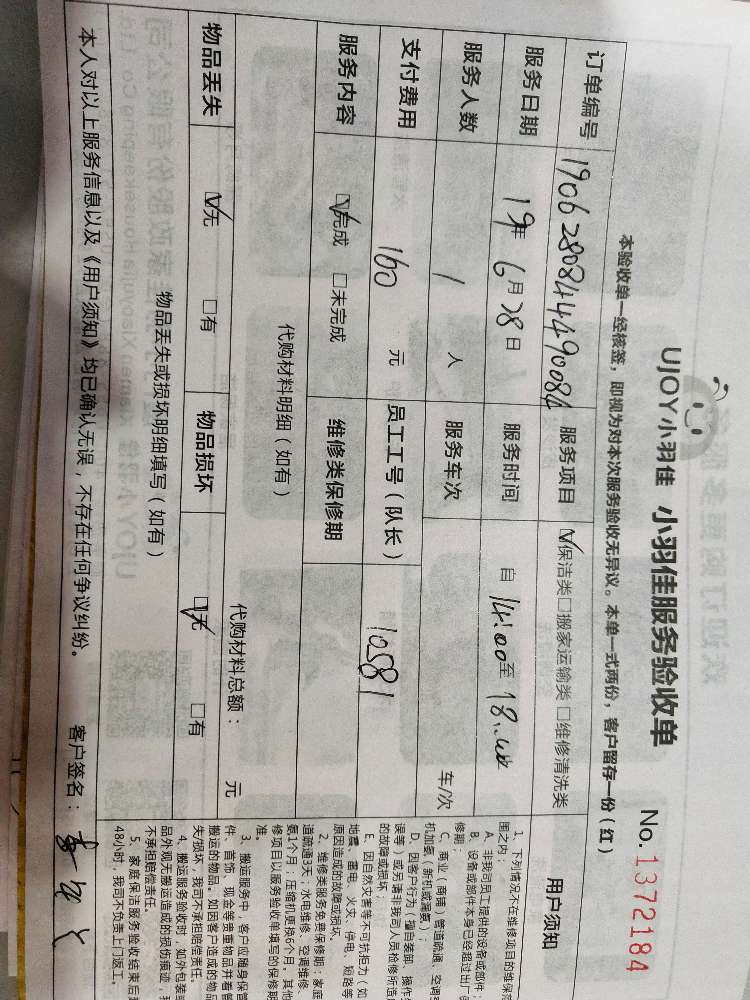 UJOY小羽佳 小羽佳服务验收单
No.1372184
本验收单一经核签，即视为对本次服务验收无异议。本单一式两份，客户留存一份（红）
订单编号 服务项目 ☑保洁类□搬家运输类□维修清洗类
服务日期 19年6月28日 服务时间 自14:00至18:00
服务人数 1人 服务车次 车/次
支付费用 160元 员工工号（队长） 10581
服务内容 ☑完成 □未完成 维修类保修期
代购材料明细（如有） 代购材料总额： 元
物品丢失 ☑无 □有 物品损坏 ☑无 □有
物品丢失或损坏明细填写（如有）
本人对以上服务信息以及《用户须知》均已确认无误，不存在任何争议纠纷。 客户签名：
用户须知
1、下列情况不在维修项目的维保范
围之内：
A、非我司员工提供的设备或部件；
B、设备或部件本身已经超过出厂
修期；
C、商业（商铺）管道疏通、空调
机加氨（新机或漏氨）；
D、因客户行为（擅自装卸、操作
误等）或另请非我司人员检修所造
的故障或损坏；
E、因自然灾害等不可抗拒力（如
地震、雷电、火灾、停电、短路等
原因造成的故障或损坏。
2、维修类服务免费保修期：家庭
道疏通3天；水电维修、空调维修、
氨1个月；压缩机更换6个月，其他
修项目以服务验收单填写的保修期
准。
3、搬运服务中，客户应随身保管
件、首饰、现金等贵重物品并看管
搬运的物品，如因客户造成的物品
失/损坏，我司不承担赔偿责任。
4、搬运服务验收时，如外包装
品外观无搬运造成的损伤痕迹，我
不承担赔偿责任。
5、家庭保洁服务验收结束后
48小时，我司不负责上门返工。